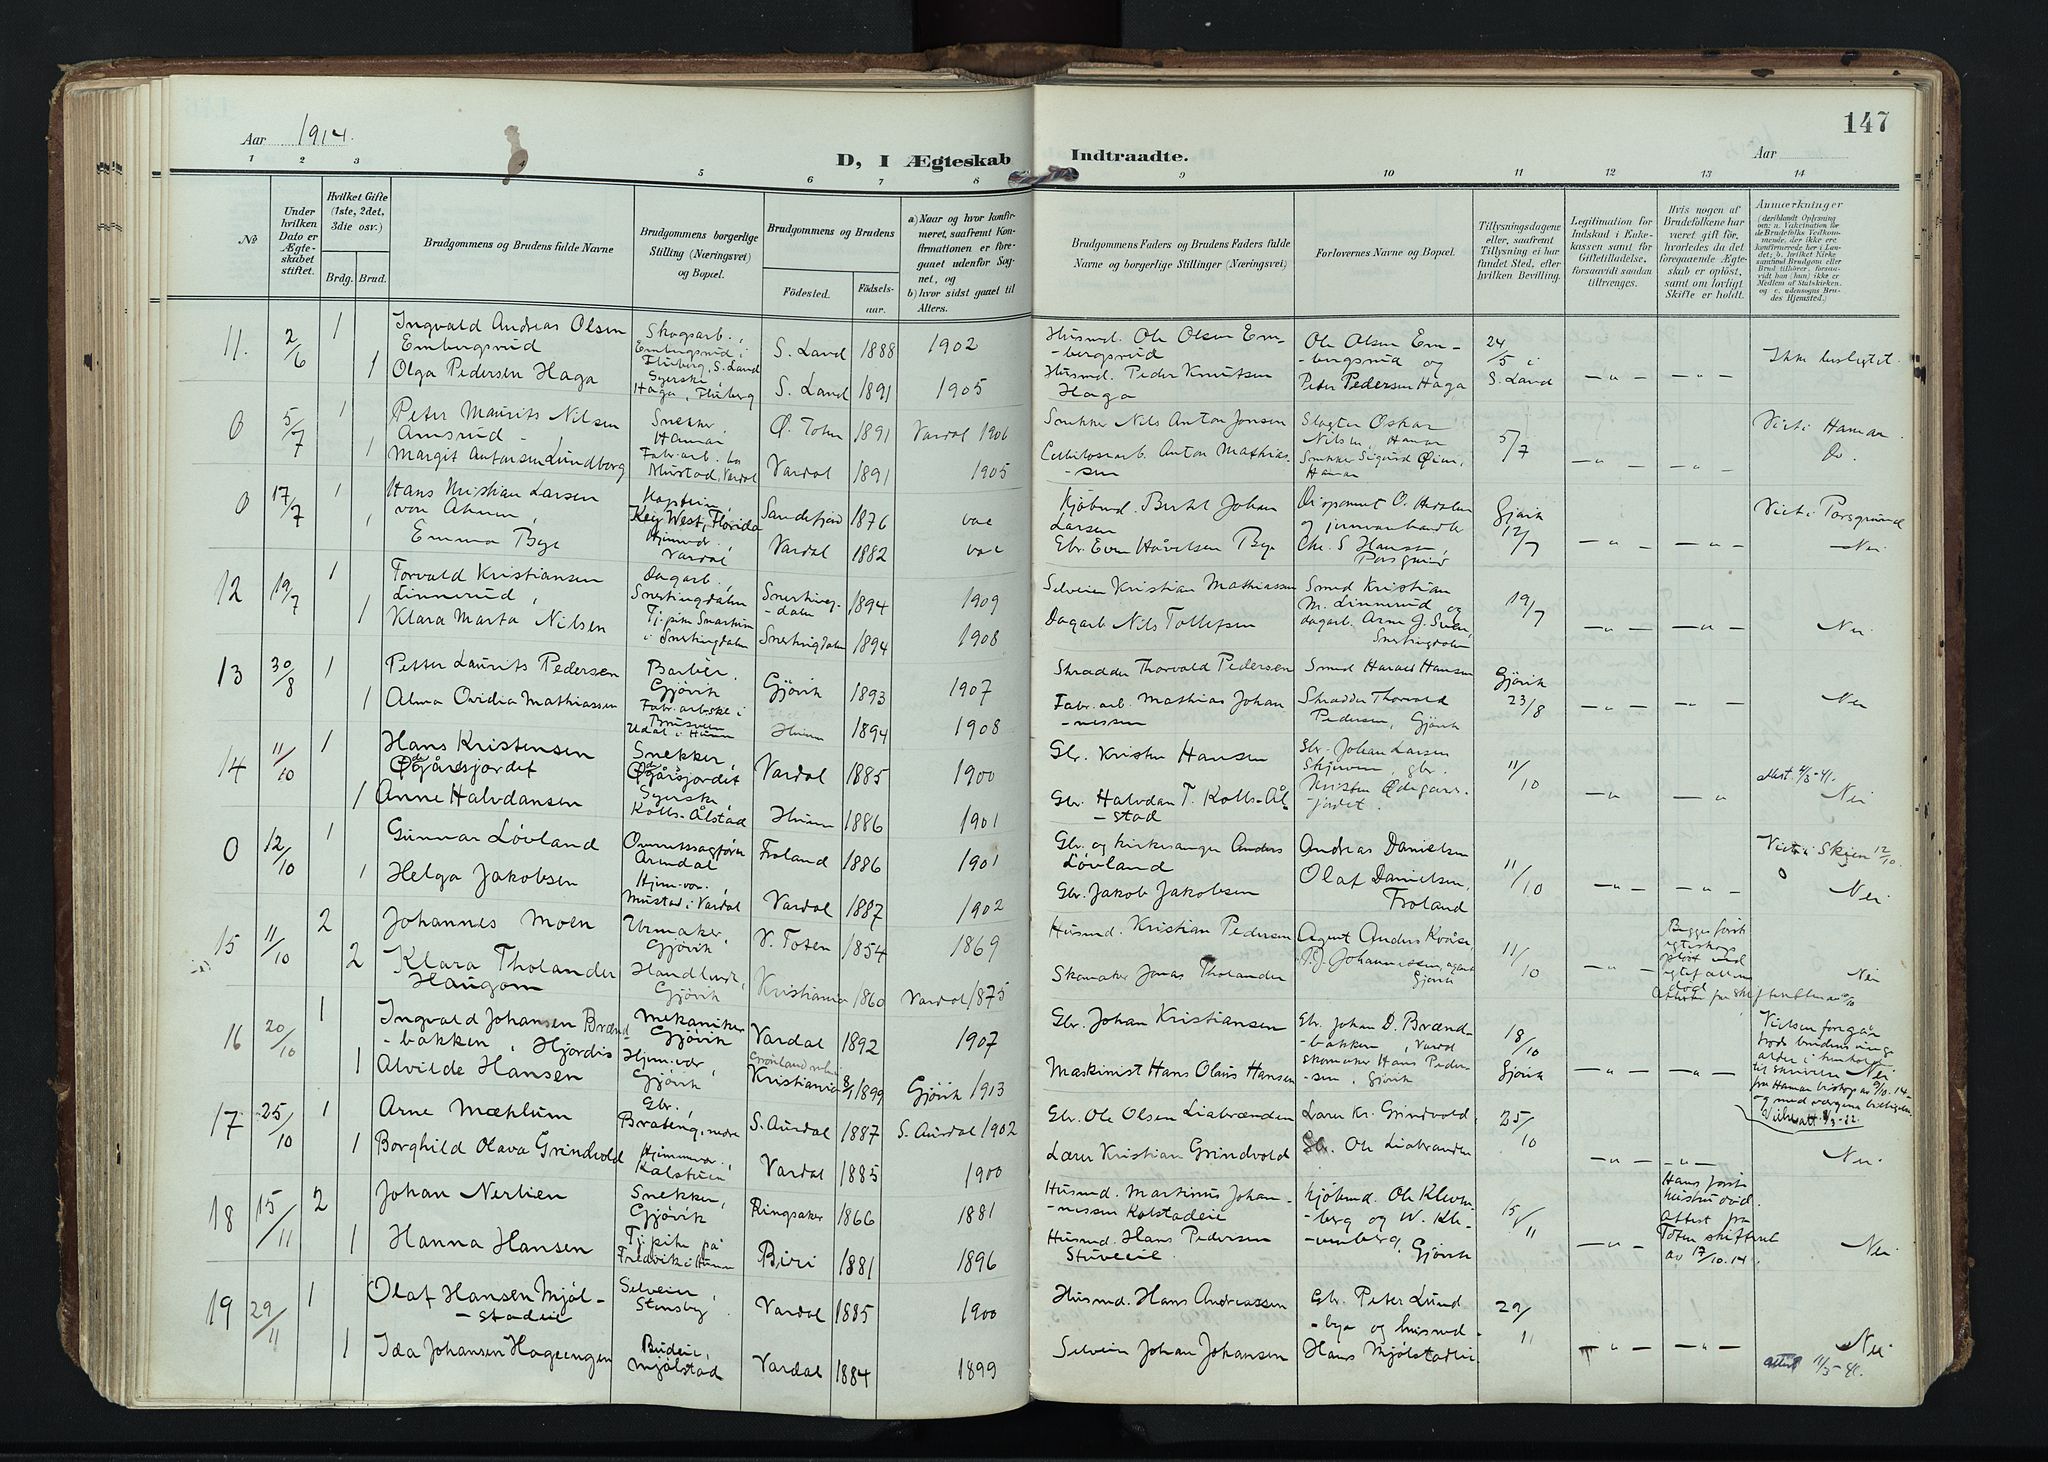 Aar 1914.
147
D, I Ægteskab Indtraadte.
Aar
1 2 3 4 5 6 7 8 9 10 11 12 13 14
№
Under hvilken Dato er Ægteskabet stiftet.
Hvilket Gifte (1ste, 2det, 3die osv.)
Brdg. Brud.
Brudgommens og Brudens fulde Navne
Brudgommens borgerlige Stilling (Næringsvei) og Bopæl.
Brudgommens og Brudens
Fødested.
Fødselsaar.
a) Naar og hvor konfirmeret, saafremt Konfirmationen er foregaaet udenfor Sognet, og
b) hvor sidst gaaet til Alters.
Brudgommens Faders og Brudens Faders fulde Navne og borgerlige Stillinger (Næringsvei)
Forlovernes Navne og Bopæl.
Tillysningsdagene eller, saafremt Tillysning ei har fundet Sted, efter hvilken Bevilling.
Legitimation for Indskud i Enkekassen samt for Giftetilladelse, forsaavidt saadan tiltrænges.
Hvis nogen af Brudefolkene har været gift før, hvorledes da det foregaaende Ægteskab er opløst, samt om lovligt Skifte er holdt.
Anmærkninger
(deriblandt Oplysning om: a. Vakcination for de Brudefolks Vedkommende, der ikke ere konfirmerede her i Landet; b. hvilket Kirkesamfund Brudgom eller Brud tilhører, forsaavidt han (hun) ikke er Medlem af Statskirken, og c. udensogns Brudes Hjemsted.)
11. 2/6 1 Ingvald Andreas Olsen Embergsrud Skogsarb., Embergsrud i Fluberg, S. Land S. Land 1888 1902 Husmd. Ole Olsen Embergsrud Ole Olsen Embergsrud og 24/5 i S. Land
1 Olga Pedersen Haga Syerske Haga, Fluberg S. Land 1891 1905 Husmd. Peder Knutsen Haga Peter Pedersen Haga — " — — " — Ikke beslegtet.
0 5/7 1 Peter Maurits Nilsen Amsrud - Snekker, Hamar Ø. Toten 1891 Vardal 1906 Snekker Nils Anton Jensen Slagter Oskar Nilsen, Hamar 5/7 Viet i Hamar.
1 Margit Antonsen Lundborg Fabr.arb. Mustad, Vardal Vardal 1891 1905 Cellulosearb. Anton Mathiassen Snekker Sigurd Hamar — " — — " — Do.
0 17/7 1 Hans Kristian Larsen von Ahnen, Kaptein, Key West, Florida Sandefjord 1876 vac Kjøbmd. Johan Larsen Disponent O. og Gjøvik 12/7 Viet i Porsgrund
1 Emma Bye Hjemvær. Vardal Vardal 1882 vac Gbr. Even Håvelsen Bye Chr. S. Hansen, Porsgrund — " — — " — — Nei
12 19/7 1 Torvald Kristiansen Linnerud, Dagarb., Snertingdalen Snertingdalen 1894 1909 Selveier Kristian Mathiassen Smed Kristian M. Linnerud og 19/7
1 Klara Marta Nilsen Tj.pike i Snertingdalen Snertingdalen 1894 1908 Dagarb. Nils Tollefsen dagarb. Arne J. Sveen, Snertingdalen — " — — " — Nei
13 30/8 1 Petter Laurits Pedersen Barbér. Gjøvik Gjøvik 1893 1907 Skrædder Thorvald Pedersen Smed Harald Hansen Gjøvik 23/8
1 Alma Ovidia Mathiassen Fabr.arbeske i Brusveen Udal i Hunn Hunn 1894 1908 Fabr.arb. Mathias Johannessen Skrædder Thorvald Pedersen, Gjøvik — " — — " — Nei
14 11/10 1 Hans Kristensen Ødegårsjordet Snekker, Ødegårsjordet Vardal 1885 1900 Gbr. Kristen Hansen Gbr. Johan Larsen Skjerven gbr. 11/10 attest. 4/3-41.
1 Anne Halvdansen Syerske, Kolls-Ålstad Hunn 1886 1901 Gbr. Halvdan T. Kolls-Ålstad Kristen Ødegårsjordet. — " — — " — Nei
0 12/10 1 Gunnar Løvland Overretssagfører Arendal Froland 1886 1901 Gbr. og kirkesanger Anders Løvland Andreas Danielsen 11/10 Viet i Skien 12/10.
1 Helga Jakobsen Hjem.vær., Mustad i Vardal Vardal 1887 1902 Gbr. Jakob Jakobsen Olaf Danielsen, Froland — " — — " — Nei
15 11/10 2 Johannes Moen Urmaker, Gjøvik V. Toten 1854 1869 Husmd. Kristian Pedersen Agent Anders Kvåse, 11/10 Begges første egteskap opløst ved egtefællens død
2 Klara Tholander Haugom Handlerske, Gjøvik Kristiania 1860 Vardal 1875 Skomaker Jonas Tholander P. J. Johannessen, agent Gjøvik — " — Attester fra skifteretten av 10/10 Nei
16 20/10 1 Ingvald Johansen Brændbakken, Mekaniker Gjøvik Vardal 1892 1907 Gbr. Johan Kristiansen Gbr. Johan D. Brændbakken, Vardal 18/10 Vielsen foregår trods brudens unge alder i henhold til skrivelse fra Hamar biskop av 9/10. 14 og med vergens billigelse
1 Hjørdis Alvilde Hansen Hjem.vær, Gjøvik Grønland Kristiania 8/1 1899 Gjøvik 1913 Maskinist Hans Olaus Hansen skomaker Hans Pedersen, Gjøvik Gjøvik — " — — " — Nei
17 25/10 1 Arne Mæhlum Gbr., Brateng, nedre S. Aurdal 1887 S. Aurdal 1902 Gbr. Ole Olsen Liabrænden Lærer Kr. Grindvold, 25/10
1 Borghild Olava Grindvold Hjemmevær., Kalstuen Vardal 1885 1900 Lærer Kristian Grindvold Gbr. Ole Liabrænden — " — — " — Nei
18 15/11 2 Johan Nerlien Snekker, Gjøvik Ringsaker 1866 1881 Husmd. Martinus Johannessen Kolstadeie kjøbmd. Ole Klevenberg og W. Klevenberg, Gjøvik 15/11 Hans første hustru død. attest fra Toten skifteret av 17/10. 14.
1 Hanna Hansen Tj.pike på Fredvik i Hunn Biri 1881 1896 Husmd. Hans Pedersen Stuveeie — " — Nei
19 29/11 1 Olaf Hansen Mjølstadeie Selveier, Stensby Vardal 1885 1900 Husmd. Hans Andreassen Gbr. Peter Lundbye og husmd. 29/11
1 Ida Johansen Hageengen Budeie, Mjølstad Vardal 1884 1899 Selveier Johan Johansen Hans Mjølstadeie — " — — " — Nei
attest 11/3-41.